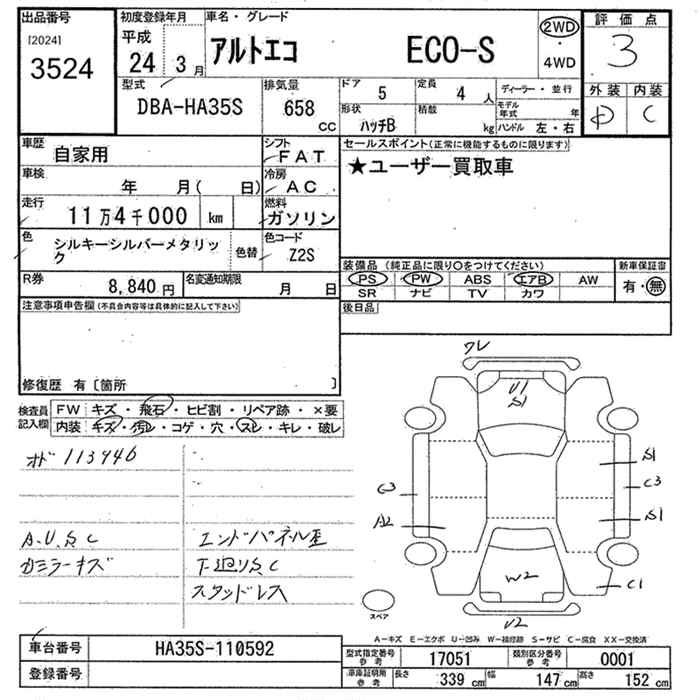 出品番号
[2024]
3524
初度登録年月
平成
24
3月
車名・グレード
アルトエコ ECO-S
2WD
・
4WD
評価点
3
外装 内装
D C
型式
DBA-HA35S
排気量
658
CC
ドア
5
定員
4 人
形状
ハッチB
積載
kg
ディーラー・並行
モデル年式 年
ハンドル 左・右
車歴
自家用
シフト
FAT
車検
年 月( 日)
冷房
AC
走行
11万4千000 km
燃料
ガソリン
色
シルキーシルバーメタリック
色替
色コード
Z2S
R券
8,840円
名変通知期限
月 日
セールスポイント(正常に機能するものに限ります)
★ユーザー買取車
装備品 (純正品に限り○をつけてください)
PS PW ABS エアB AW
SR ナビ TV カワ
新車保証書
有・無
後日品
注意事項申告欄 (不具合内容等は具体的に記入して下さい)
修復歴 有〔箇所 〕
検査員記入欄
FW キズ・飛石・ヒビ割・リペア跡・×要
内装 キズ・汚レ・コゲ・穴・スレ・キレ・破レ
オド 113946
A.U.S.C
エンドパネル歪
カミラーキズ
下廻りSC
スタッドレス
ワレ
U1
S1
S1
C3
C3
A2
S1
W2
C1
U2
スペア
A-キズ E-エクボ U-凹み W-補修跡 S-サビ C-腐食 XX-交換済
車台番号
HA35S-110592
登録番号
型式指定番号
参考
17051
類別区分番号
参考
0001
車庫証明用
参考
長さ
339 cm
幅
147 cm
高さ
152 cm